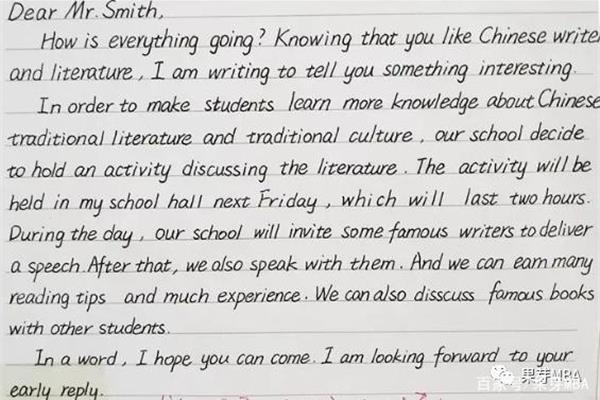 Dear Mr. Smith,
How is everything going? Knowing that you like Chinese write
and literature, I am writing to tell you something interesting.
In order to make students learn more knowledge about Chinese
traditional literature and traditional culture, our school decide
to hold an activity discussing the literature. The activity will be
held in my school hall next Friday, which will last two hours.
During the day, our school will invite some famous writers to deliver
a speech. After that, we also speak with them. And we can earn many
reading tips and much experience. We can also disscuss famous books
with other students.
In a word, I hope you can come. I am looking forward to your
early reply.
果芽MBA
百家号/果芽MBA